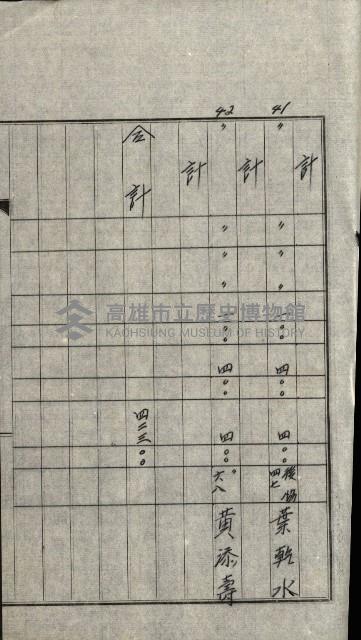 計
41 〃 〃 〃 〃 〃 四〇〇 四〇〇 後協 四七 葉乾水
計
42 〃 〃 〃 〃 〃 四〇〇 四〇〇 〃 六八 黃添壽
計
合計 四二三〇〇
高雄市立歷史博物館
KAOHSIUNG MUSEUM OF HISTORY